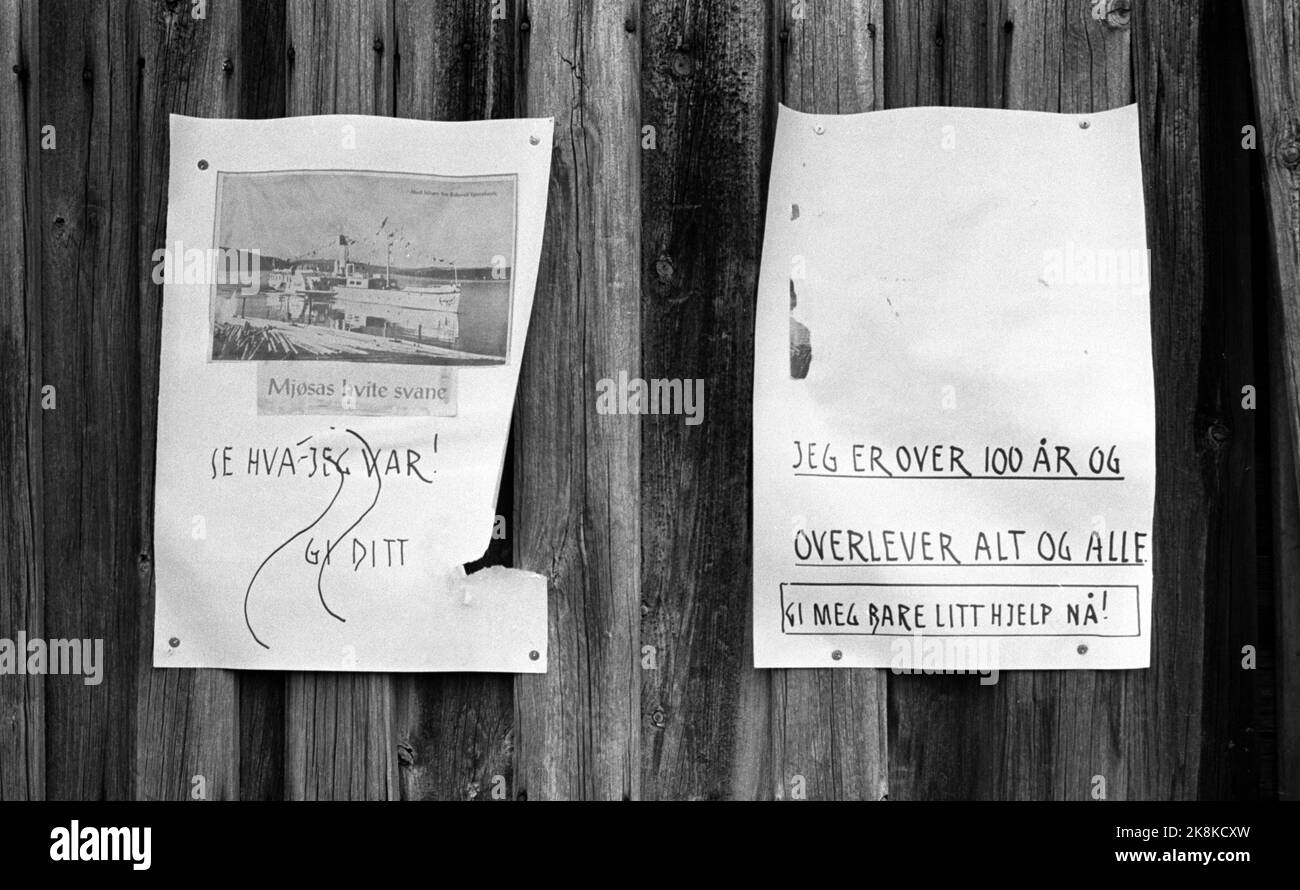 Mjøsas hvite svane
SE HVA JEG VAR!
GI DITT
JEG ER OVER 100 ÅR OG
OVERLEVER ALT OG ALLE.
GI MEG BARE LITT HJELP NÅ!
alamy
Image ID: 2K8KCXW
www.alamy.com